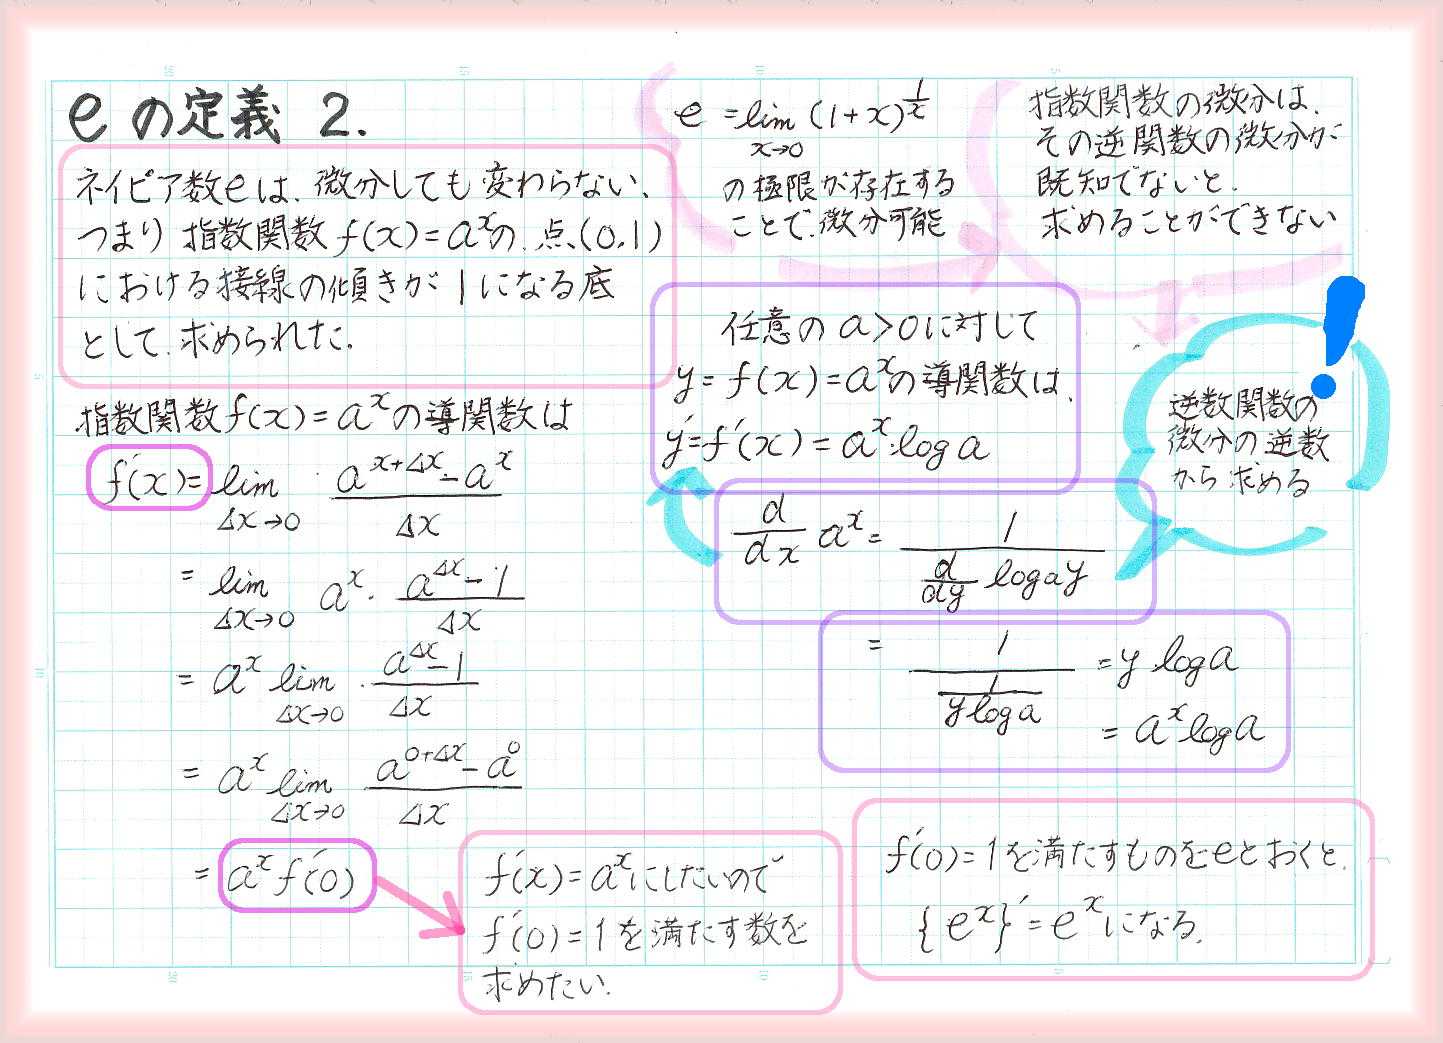 eの定義 2.
ネイピア数eは、微分しても変わらない、
つまり指数関数f(x)=a^xの、点、(0,1)
における接線の傾きが1になる底
として、求められた。
指数関数f(x)=a^xの導関数は
f'(x)= lim Δx→0 · (a^(x+Δx) - a^x)/Δx
= lim Δx→0 a^x · (a^Δx - 1)/Δx
= a^x lim Δx→0 · (a^Δx - 1)/Δx
= a^x lim Δx→0 (a^(0+Δx) - a^0)/Δx
= a^x f'(0)
f'(x)=a^xにしたいので
f'(0)=1を満たす数を
求めたい.
e = lim x→0 (1+x)^(1/x)
の極限が存在する
ことで、微分可能
指数関数の微分は、
その逆関数の微分が
既知でないと、
求めることができない
任意のa>0に対して
y=f(x)=a^xの導関数は、
y'=f'(x)=a^x·log a
逆数関数の
微分の逆数
から求める
d/dx a^x = 1/(d/dy log a y)
= 1/(1/(y log a)) = y log a
= a^x log a
f'(0)=1を満たすものをeとおくと、
{e^x}'=e^xになる.